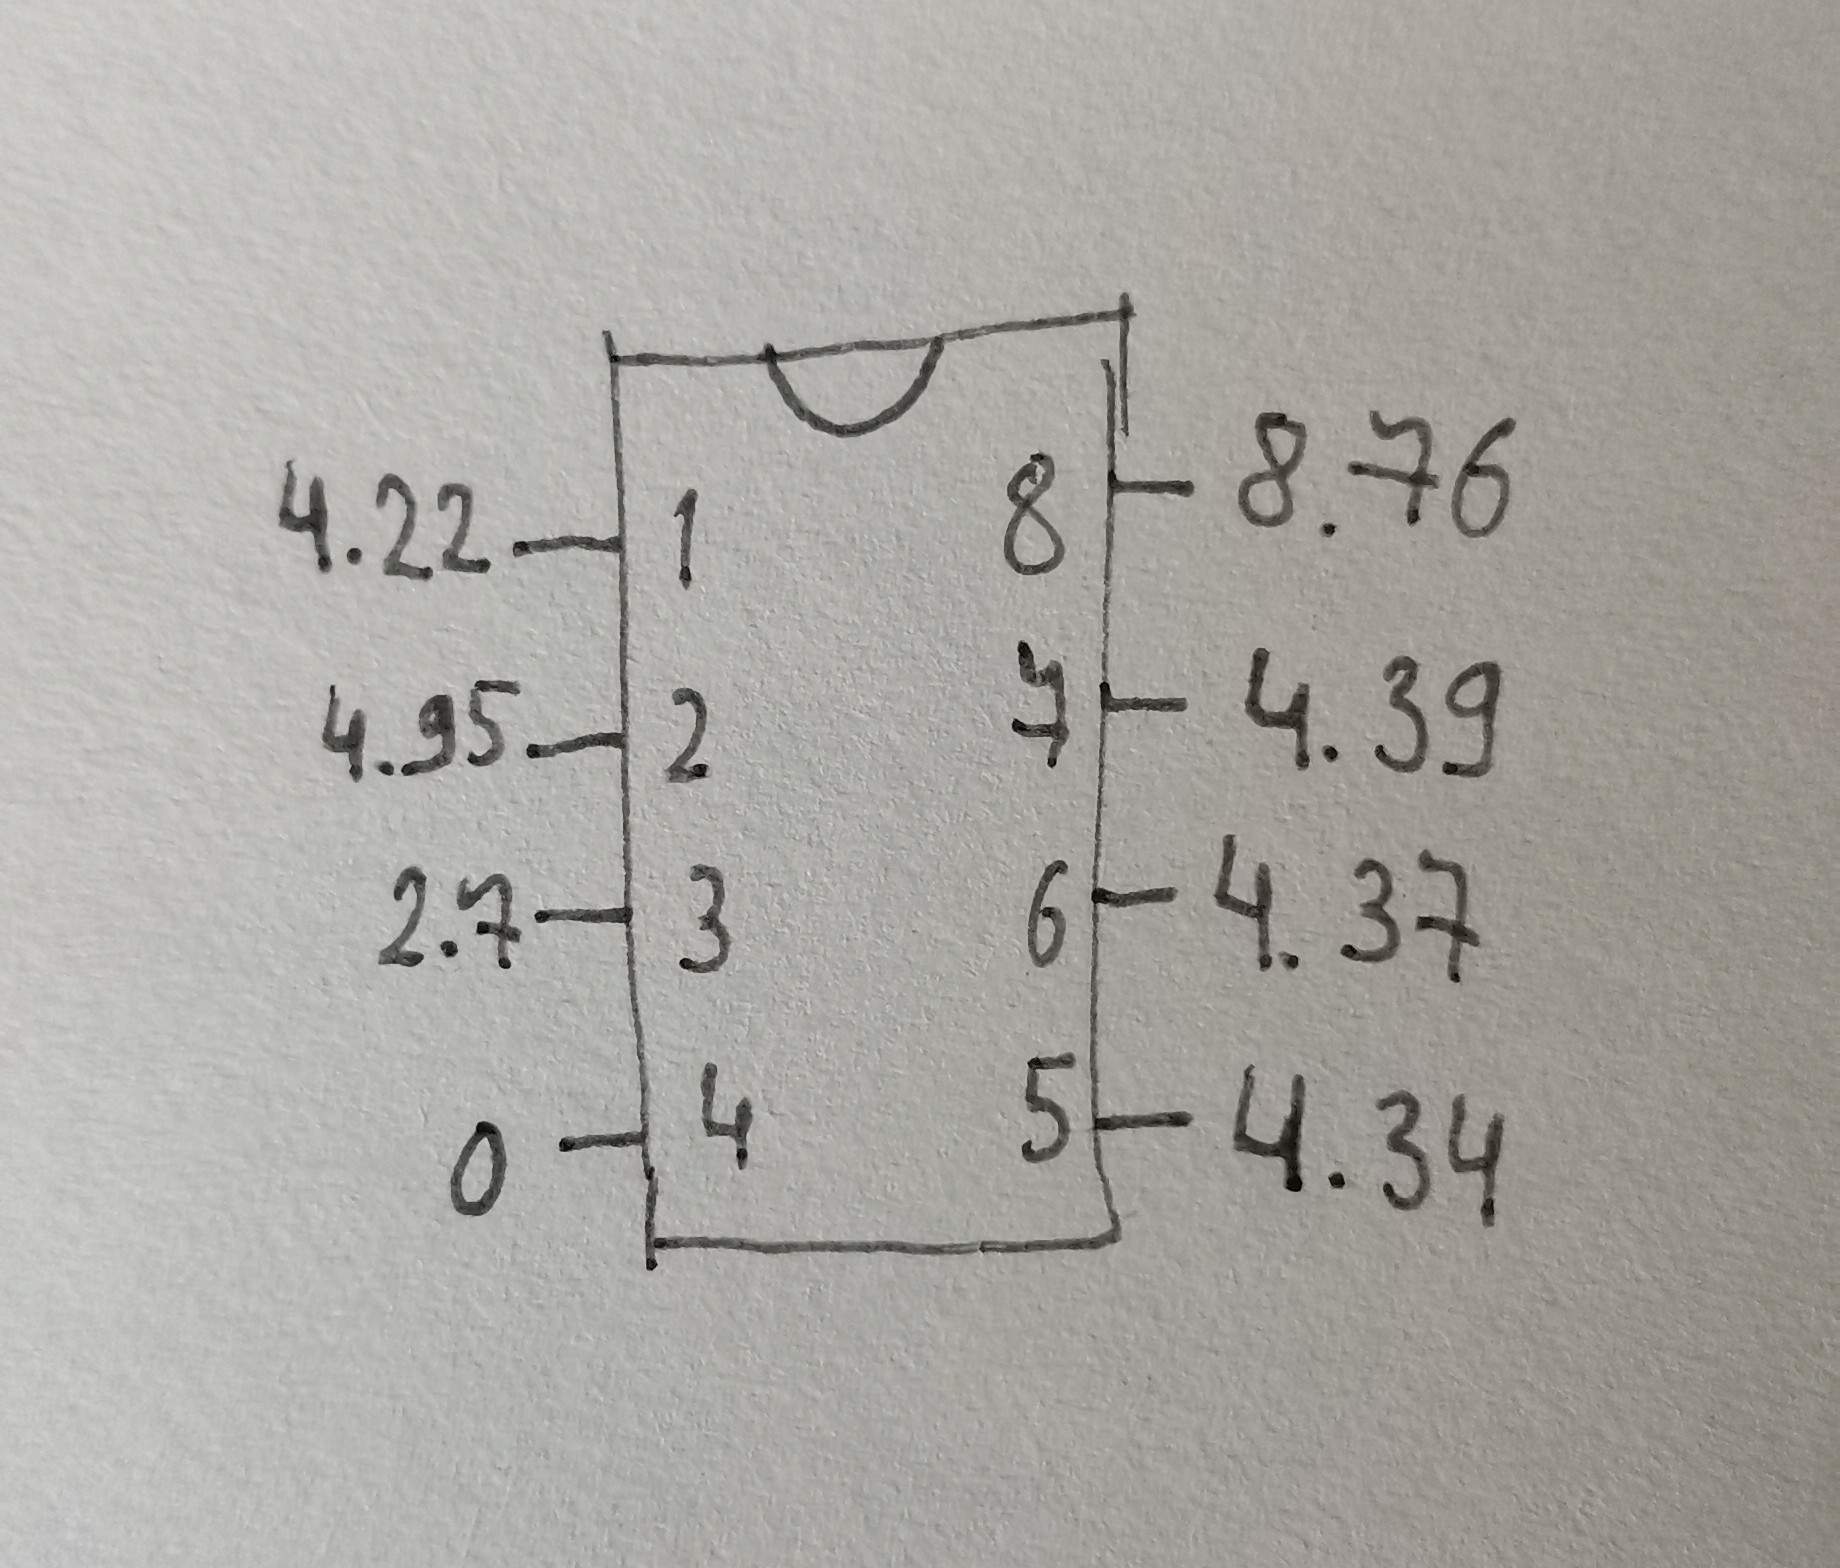 4.22 1 8 8.76
4.95 2 7 4.39
2.7 3 6 4.37
0 4 5 4.34